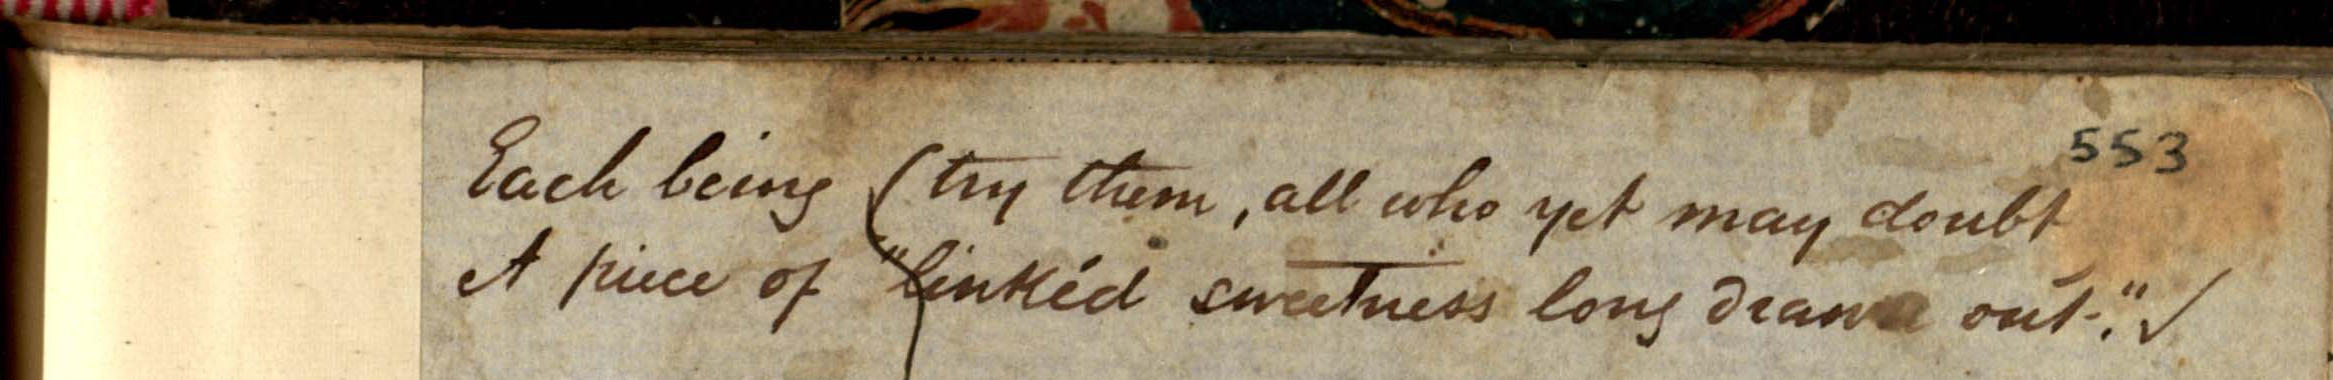 553
Each being (try them, all who yet may doubt
A piece of "linkéd sweetness long drawn out." ✓